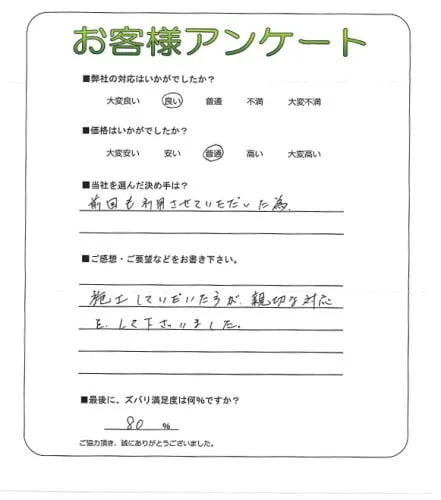 お客様アンケート
■弊社の対応はいかがでしたか？
大変良い 良い 普通 不満 大変不満
■価格はいかがでしたか？
大変安い 安い 普通 高い 大変高い
■当社を選んだ決め手は？
前回も利用させていただいた為。
■ご感想・ご要望などをお書き下さい。
施工していただいた方が、親切な対応
を、して下さいました。
■最後に、ズバリ満足度は何％ですか？
80 %
ご協力頂き、誠にありがとうございました。